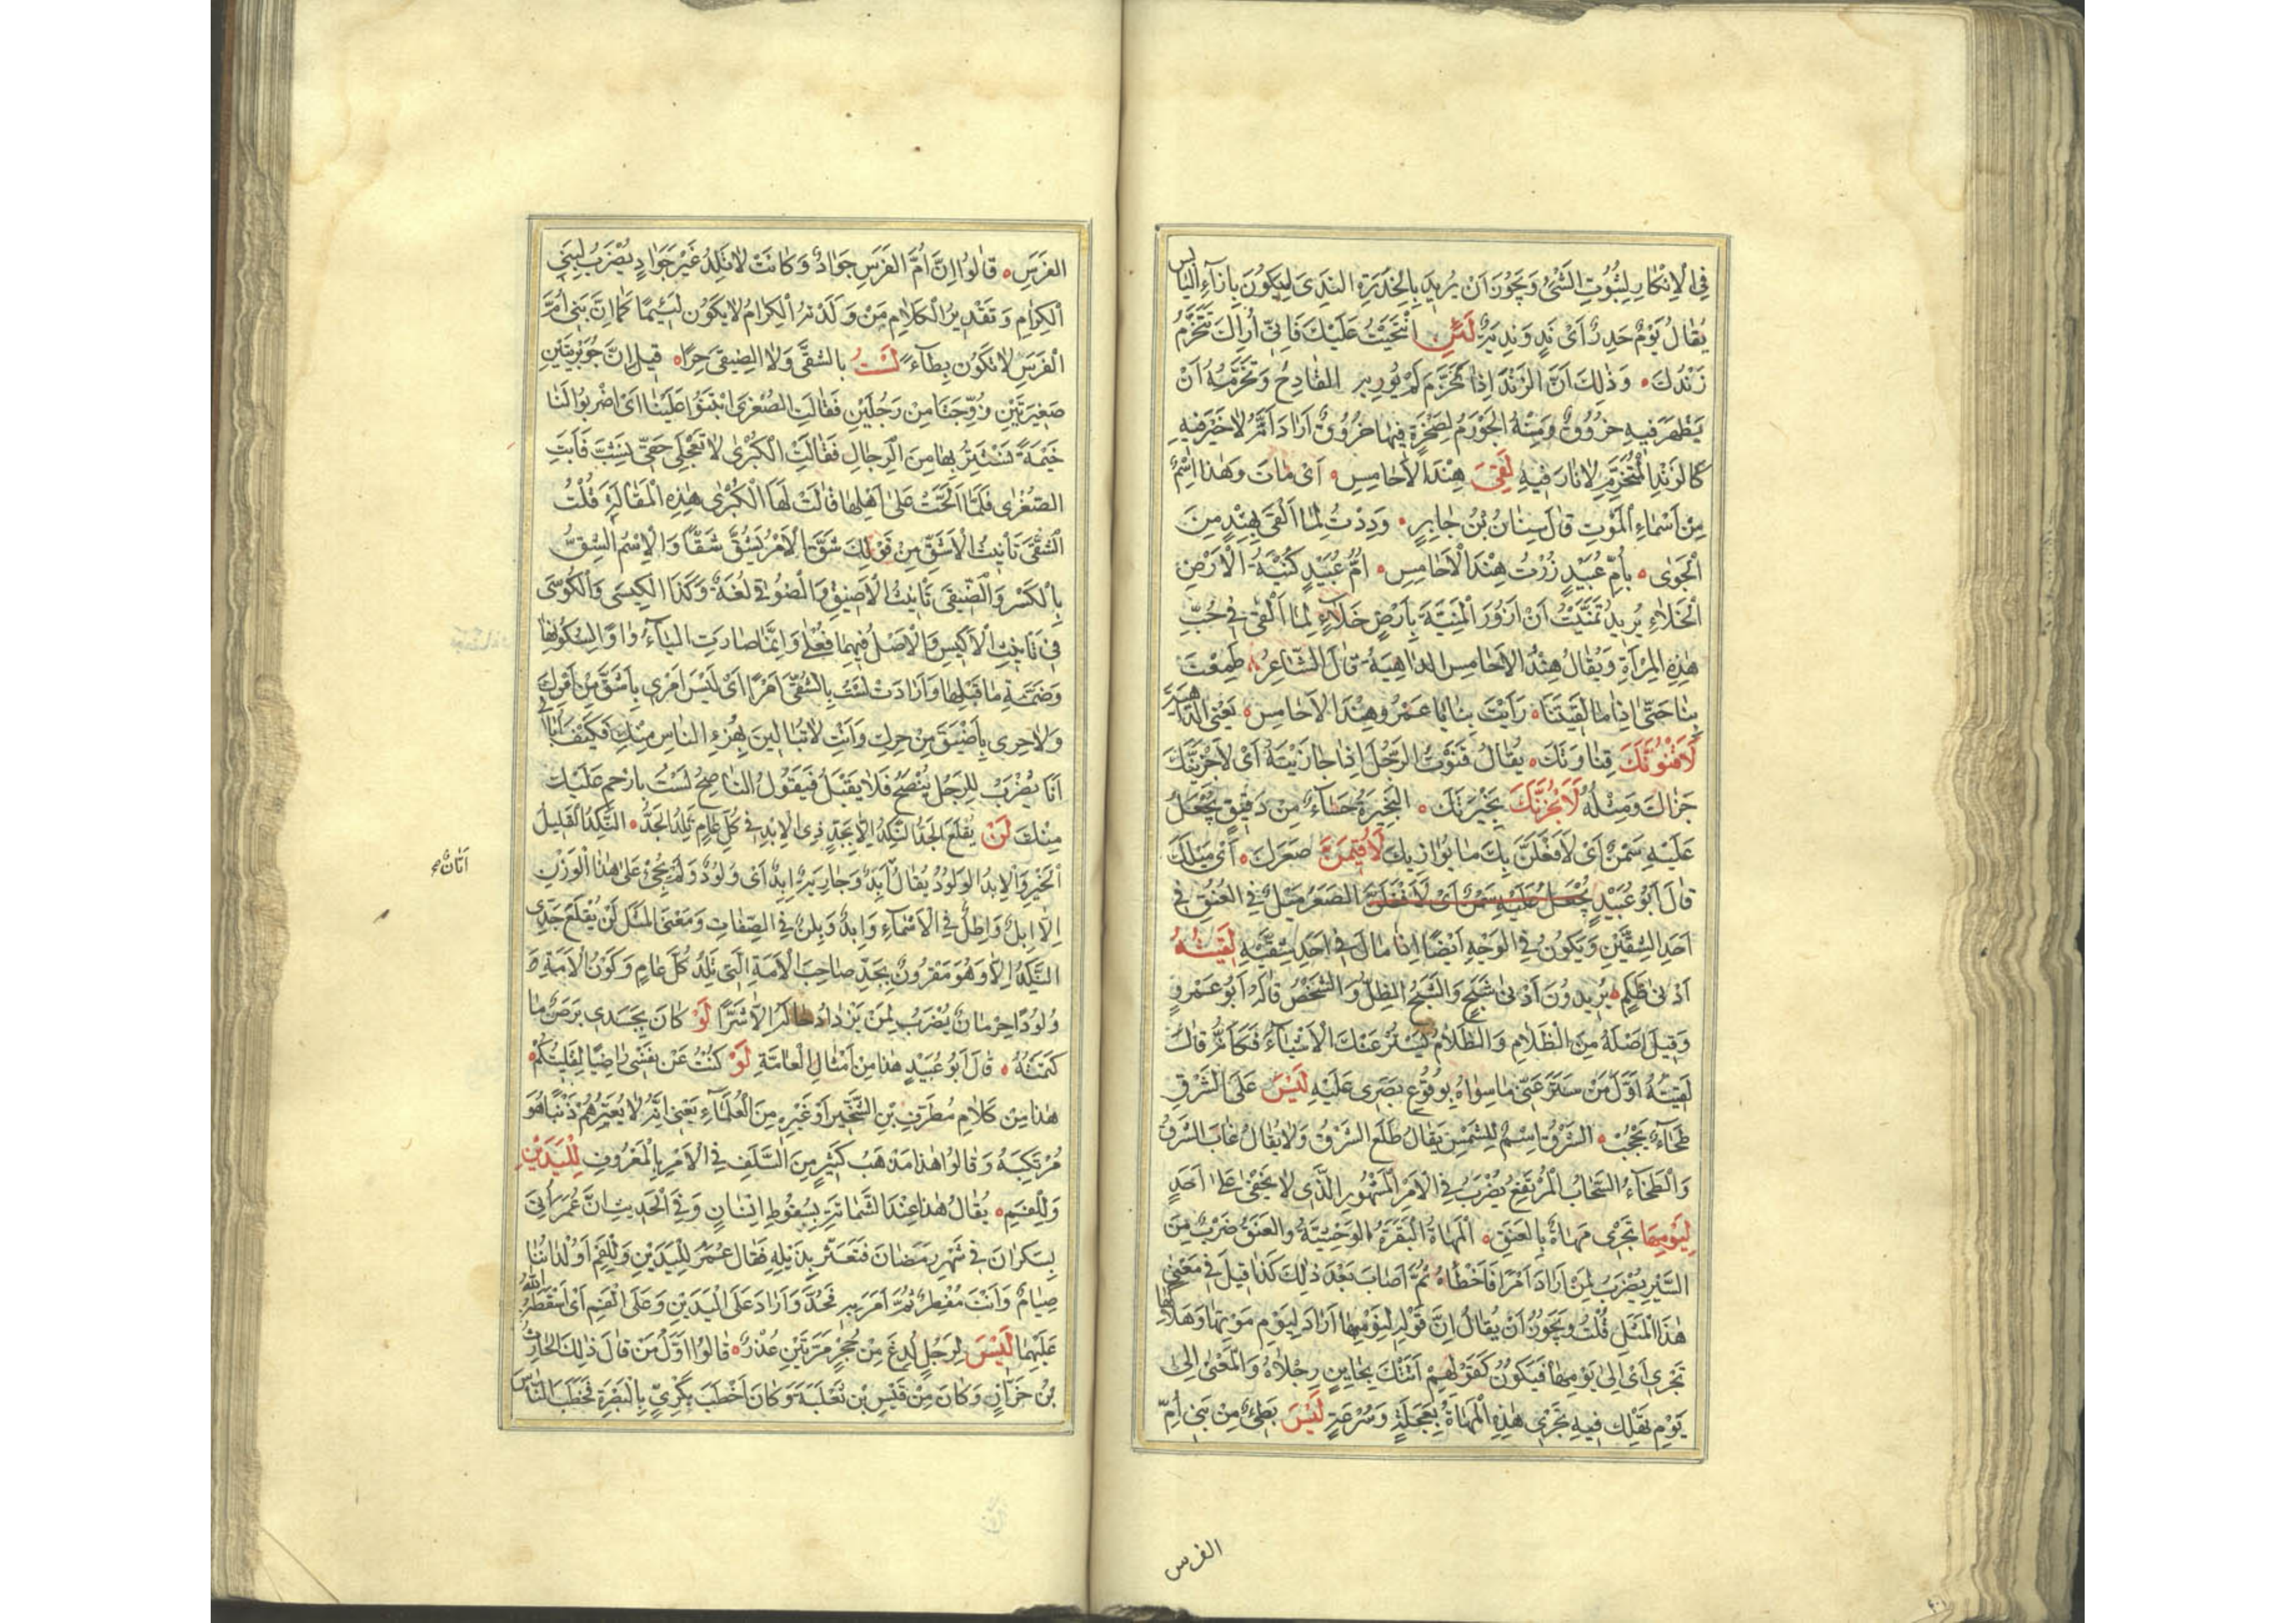 في الانكار لثبوت الشئ ويجوز ان يريد بالخدرة الندى ليكون بازاء اليابس
يقال يوم خدر اى ند وندير لئن انتحيت عليك فاني اراك تتخرم
زندك وذلك ان الزند اذا تخرم لم يور به القادح وتخرمه ان
يظهر فيه خروق ومنه الخورم لصخرة فيها خروق اراد انه لا خير فيه
كالزند المتخرم لا نار فيه لقي هند الاحامس اى مات وهذا اسم
من اسماء الموت قال سنان بن جابر وددت لما القى بهند من
الجوى بام عبيد زرت هند الاحامس ام عبيد كنية الارض
الخلاء يريد تمنيت ان ازور المنية بارض خلاء لما القى في حب
هذه المراة ويقال هند الاحامس الداهية قال الشاعر طمعت
بنا حتى اذا ما لقيتنا رايت بنا يا عمرو هند الاحامس يعني الداهية
لاقنونك قناوتك يقال قنوت الرجل اذا جازيته اى لاجزينك
جزاك ومثله لانجزنك نجيرتك النجيرة حساء من دقيق يجعل
عليه سمن اى لافعلن بك ما يوازيك لاقيمن صعرك اى ميلك
قال ابو عبيد يجعل عليه سمن اى لافعلن الصعر ميل في العنق في
احد الشقين ويكون في الوجه ايضا اذا مال في احد شقيه لقيته
ادنى ظلم يريدون ادنى شبح والشبح الظل والشخص قاله ابو عمرو
وقيل اصله من الظلام والظلام يستر عنك الاشياء فكانه قال
لقيته اول من ستر عني ما سواه بوقوع بصرى عليه ليس على الشرق
طخاء يحجب الشرق اسم للشمس يقال طلع الشرق ولا يقال غاب الشرق
والطخاء السحاب المرتفع يضرب في الامر المشهور الذى لا يخفى على احد
ليومها تجرى مهاة بالعنق المهاة البقرة الوحشية والعنق ضرب من
السير يضرب لمن اراد امرا فاخطاه ثم اصاب بعد ذلك كذا قيل في معنى
هذا المثل قلت ويجوز ان يقال ان قوله ليومها اراد ليوم موتها وهلاكها
تجرى اى الى يومها فيكون كقولهم اتتك بحاين رجلاه والمعنى الى
يوم تهلك فيه تجرى هذه المهاة بعجلة وسرعة ليس بطئ من بني ام
الفرس
الفرس قالوا ان ام الفرس جواد وكانت لا تلد غير جواد يضرب لبني
الكرام وتقدير الكلام من ولدته الكرام لا يكون لئيما كما ان بني ام
الفرس لا تكون بطاء لست بالشقى ولا الضيقى حرا قيل ان جويريتين
صغيرتين زوجتا من رجلين فقالت الصغرى ابتنوا علينا اى اضربوا لنا
خيمة نستتر بها من الرجال فقالت الكبرى لا تعجلي حتى نشب فابت
الصغرى فلما الحت على اهلها قالت لها الكبرى هذه المقالة قلت
الشقى تانيث الاشق من قولك شق الامر يشق شقا والاسم الشق
بالكسر والضيقى تانيث الاضيق والضوقى لغة وكذا الكيسى والكوسى
في تانيث الاكيس والاصل فيهما فعلى وانما صارت الياء واوا لسكونها
وضمة ما قبلها وارادت لست بالشقى امرا اى ليس امرى باشق من امرك
ولا حرى باضيق من حرك وانت لا تبالين بهزء الناس منك فكيف ابالي
انا يضرب للرجل ينصح فلا يقبل فيقول الناصح لست بارحم عليك
منك لن يقلع الجد النكد الا بجد ذى الابد في كل عام تلد الجد النكد القليل
الخير والابد الولود يقال اتان ابد وجارية ابد اى ولود ولم يجئ على هذا الوزن
اتان
الا ابل واطل في الاسماء وابد وبلز في الصفات ومعنى المثل لن يقلع جدى
النكد الا وهو مقرون بجد صاحب الامة التي تلد كل عام وكون الامة
ولودا حرمان يضرب لمن يزداد حاله الا شرا لو كان بجسدى برص ما
كتمته قال ابو عبيد هذا من امثال العامة لو كنت عن نفسى راضيا لقليتكم
هذا من كلام مطرف بن الشخير او غيره من العلماء يعني انه لا يعيرهم ذنبا هو
مرتكبه وقالوا هذا مذهب كثير من السلف في الامر بالمعروف لليدين
وللفم يقال هذا عند الشماتة بسقوط انسان وفي الحديث ان عمر اتى
بسكران في شهر رمضان فتعثر بذيله فقال عمر لليدين وللفم اولداننا
صيام وانت مفطر ثم امر به فحد واراد على اليدين وعلى الفم اى اسقطه الله
عليهما ليس لرجل لدغ من جحر مرتين عذر قالوا اول من قال ذلك الحارث
بن خزاز وكان من قيس بن ثعلبة وكان اخطب بكرى بالبصرة فخطب الناس